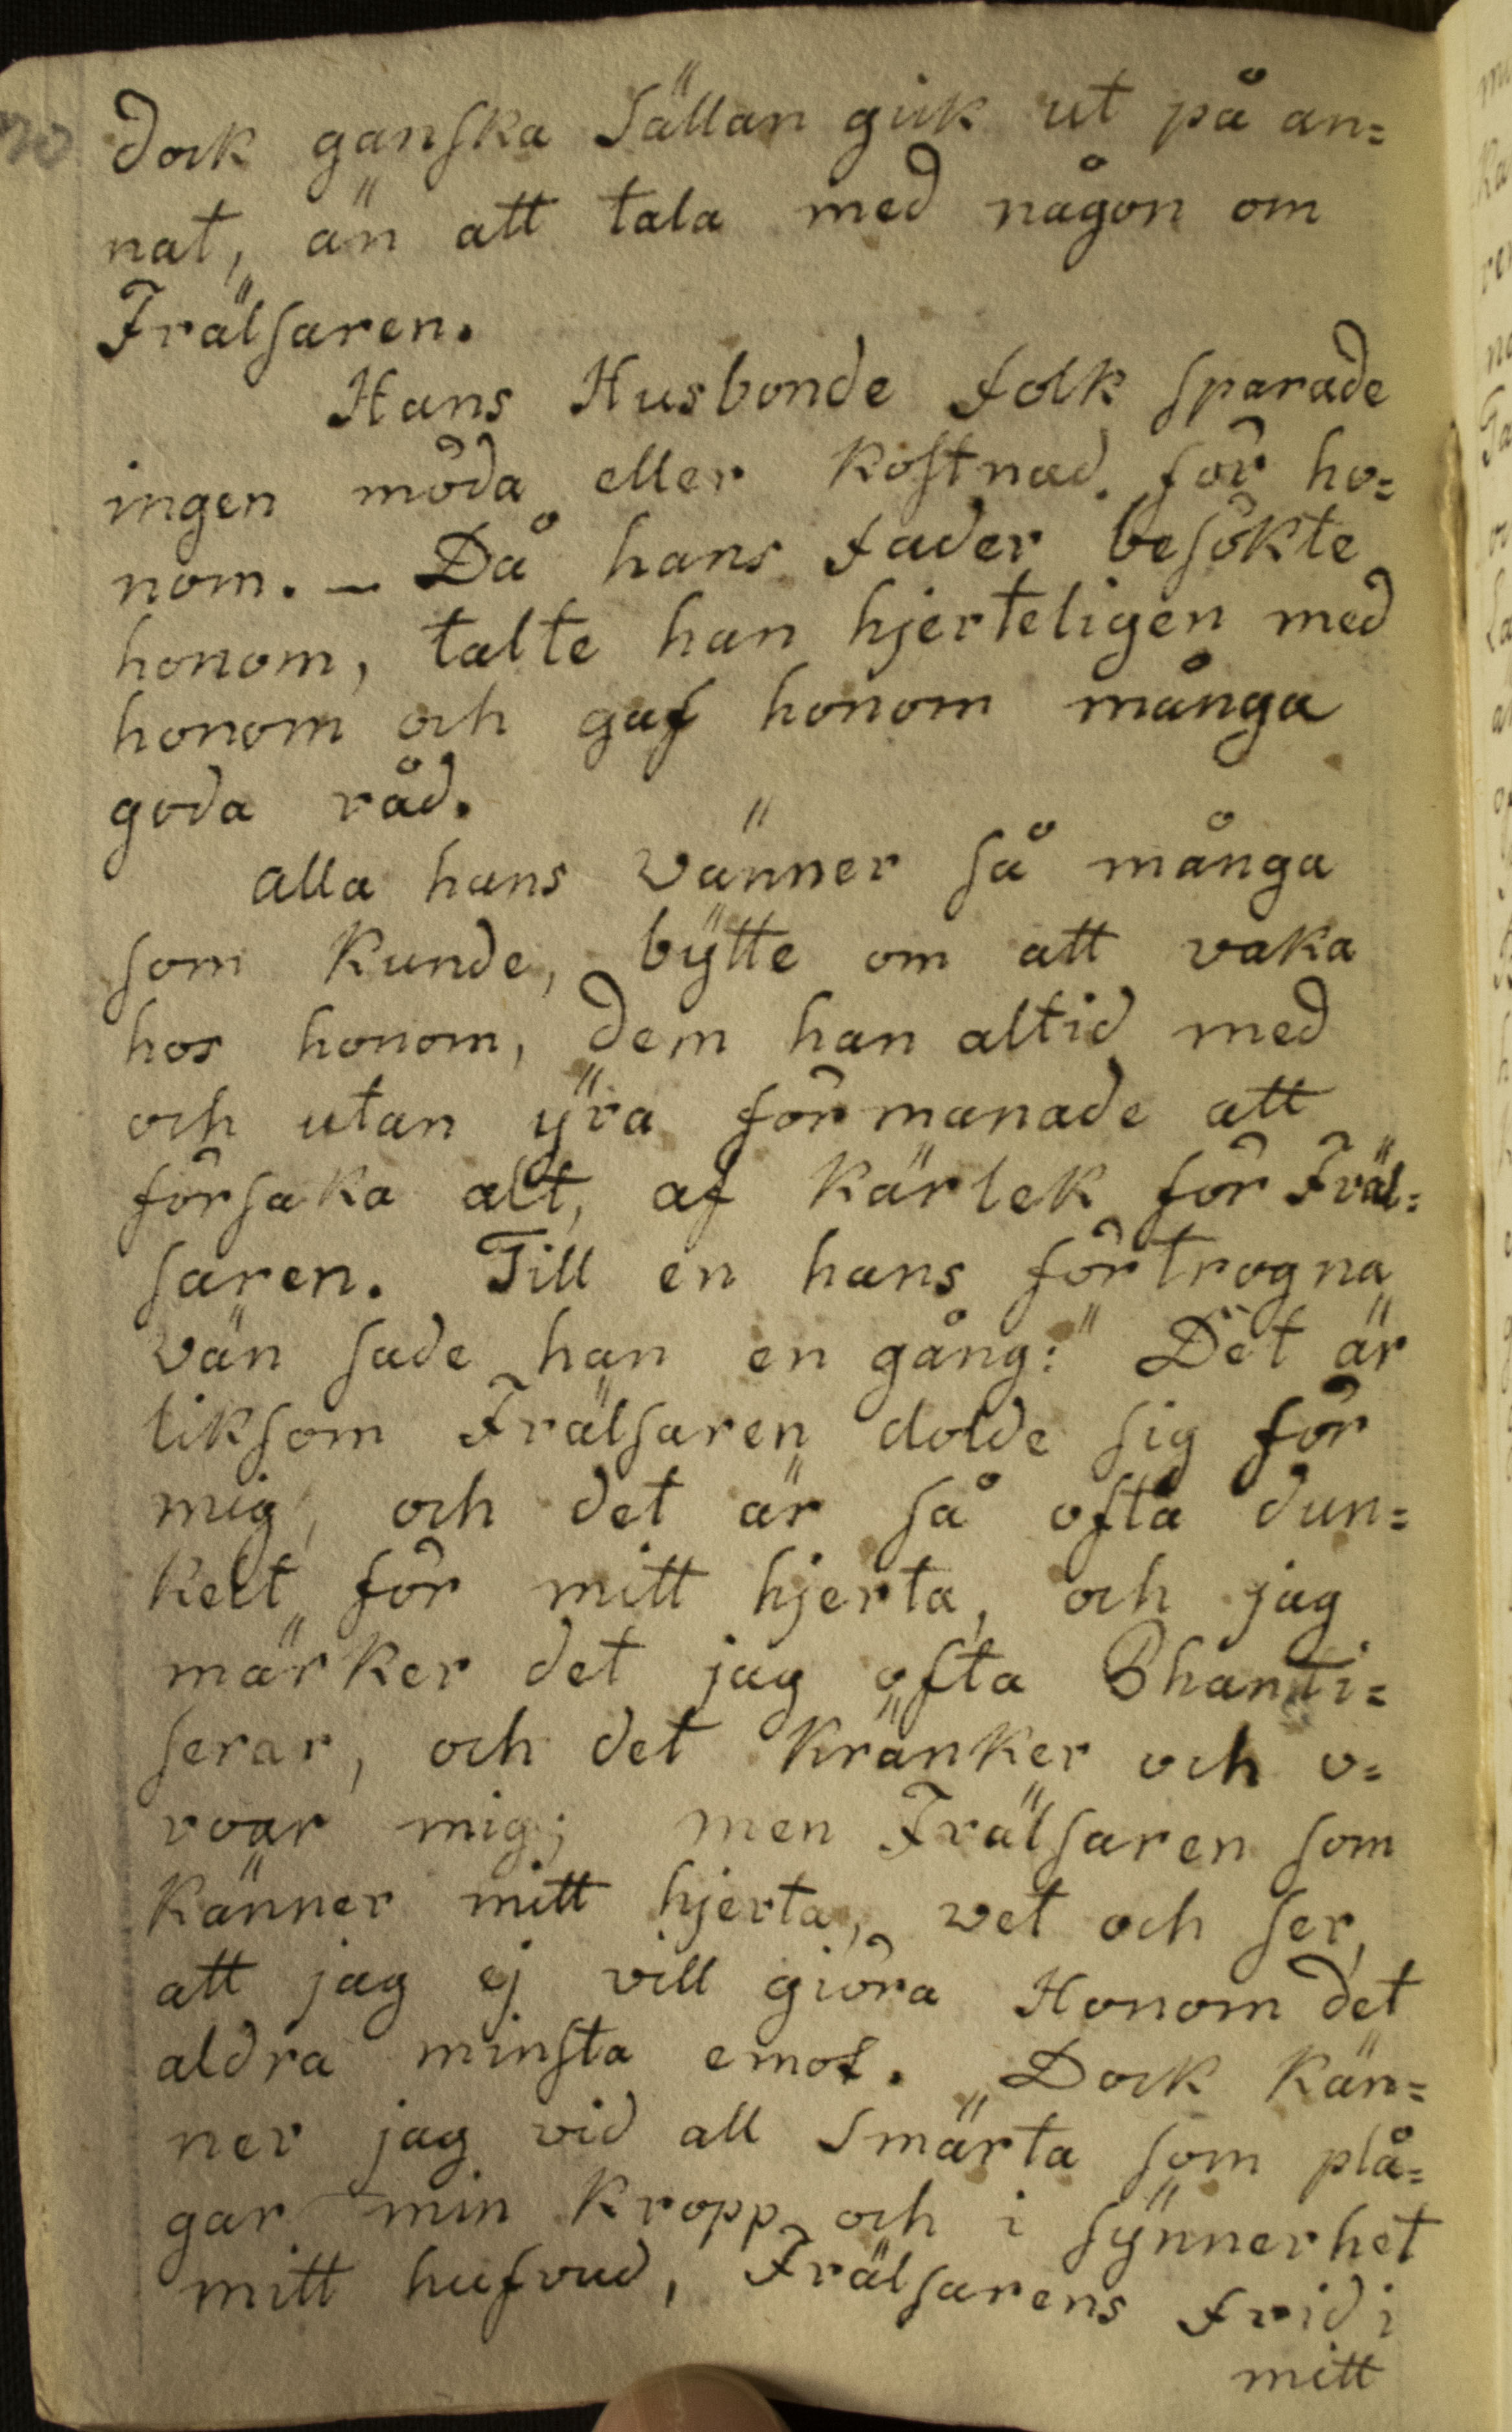 dock ganska sällan gick ut på an=
nat, än att tala med någon om
Frälsaren.
Hans Husbonde folk sparade
ingen möda eller kostnad för ho=
nom. — Då hans Fader besökte
honom, talte han hjerteligen med
honom och gaf honom många
goda råd.
Alla hans vänner så många
som kunde, bÿtte om att vaka
hos honom, dem han altid med
och utan ÿra förmanade att
försaka alt, af kärlek för Fräl=
saren. Till en hans förtrogna
vän sade han en gång: "Det är
liksom Frälsaren dolde sig för
mig, och det är så ofta dun=
kelt för mitt hjerta, och jag
märker det jag ofta Phanti=
serar, och det kränker och o=
roar mig; men Frälsaren som
känner mitt hjerta, vet och ser,
att jag ej vill giöra Honom det
aldra minsta emot. Dock kän=
ner jag vid all smärta som plå=
gar min kropp och i sÿnnerhet
mitt hufvud, Frälsarens frid i
mitt